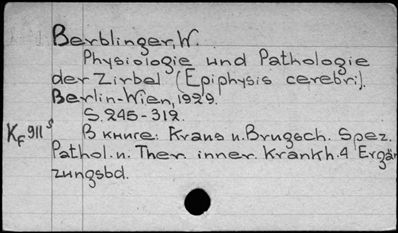 Berblinger, W.
Physiologie und Pathologie
der Zirbel (Epiphysis cerebri).
Berlin-Wien, 1929.
S. 245-312.
K_F 911^s В книге: Kraus u. Brugsch. Spez.
Pathol. u. Ther. inner. Krankh. 4 Ergän
zungsbd.